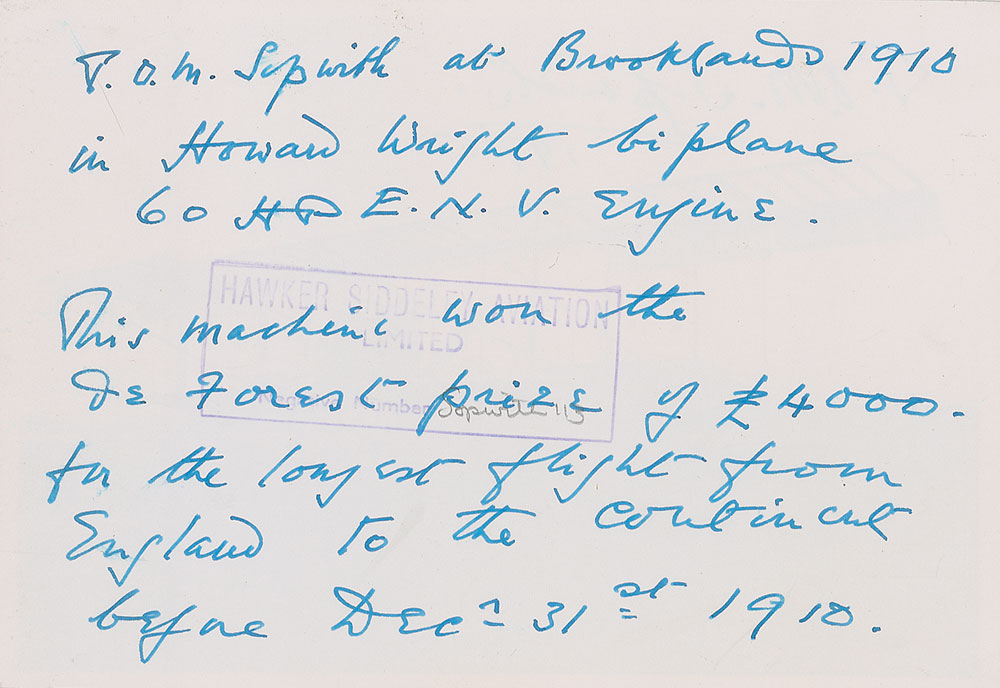 T. O. M. Sopwith at Brooklands 1910
in Howard Wright biplane
60 HP E. N. V. Engine.
HAWKER SIDDELEY AVIATION
LIMITED
Negative Number Sopwith 113
This machine won the
de Forest prize of £4000.
for the longest flight from
England to the continent
before Decr 31st 1910.